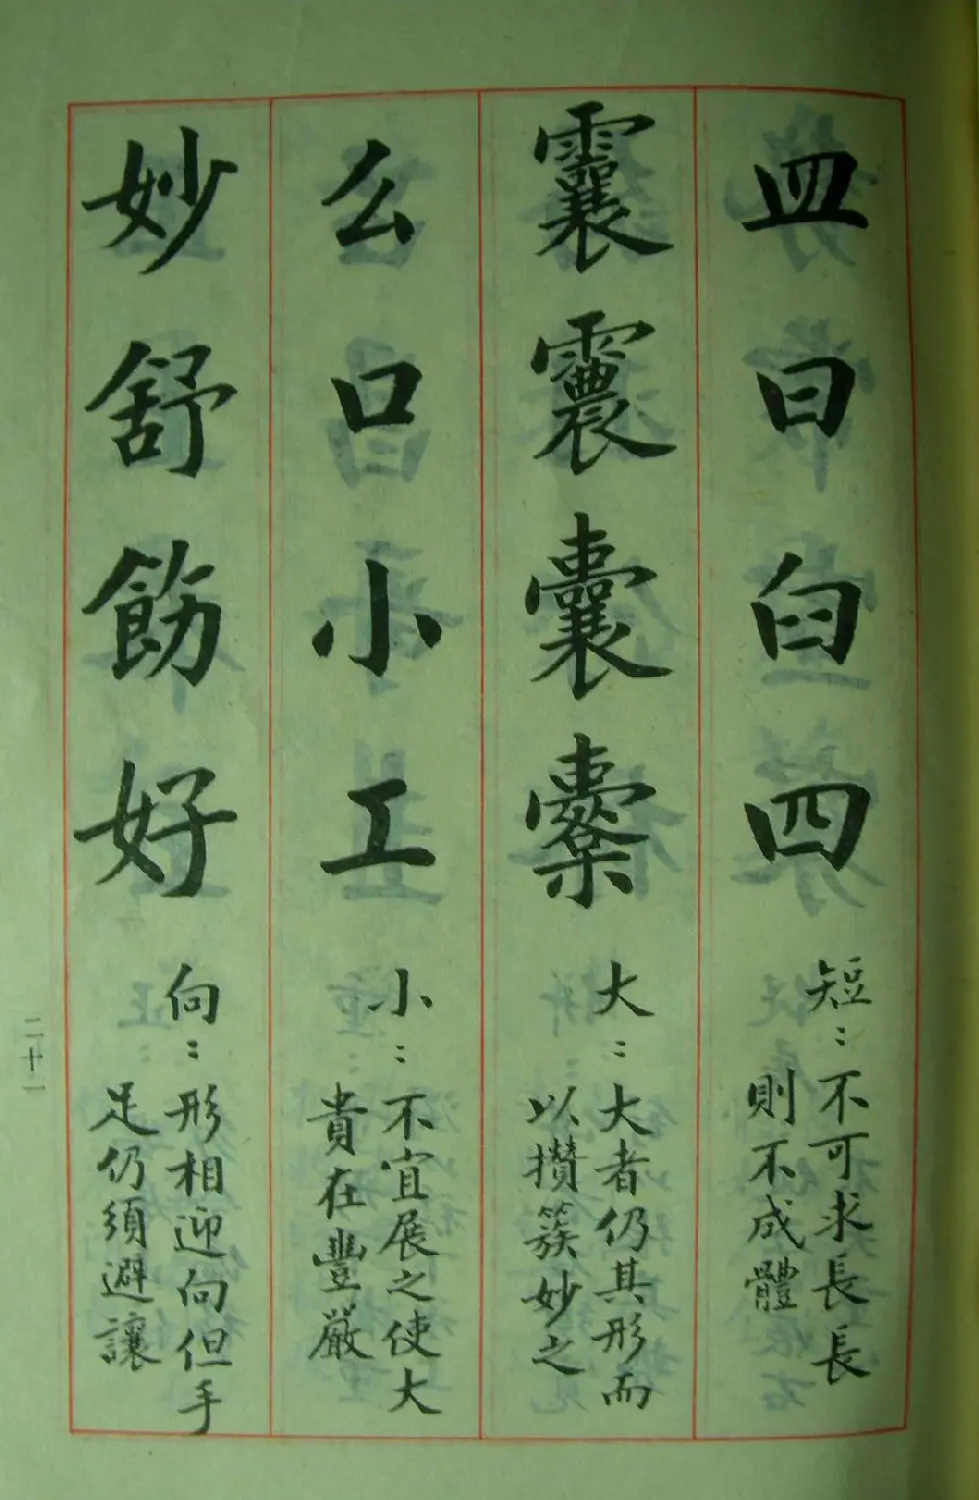 皿曰白四
短：不可求長長
則不成體
囊
大：大者仍其形而
以攢簇妙之
么口小工
小：不宜展之使大
貴在豐嚴
妙舒飭好
向：形相迎向但手
足仍須避讓
二十一